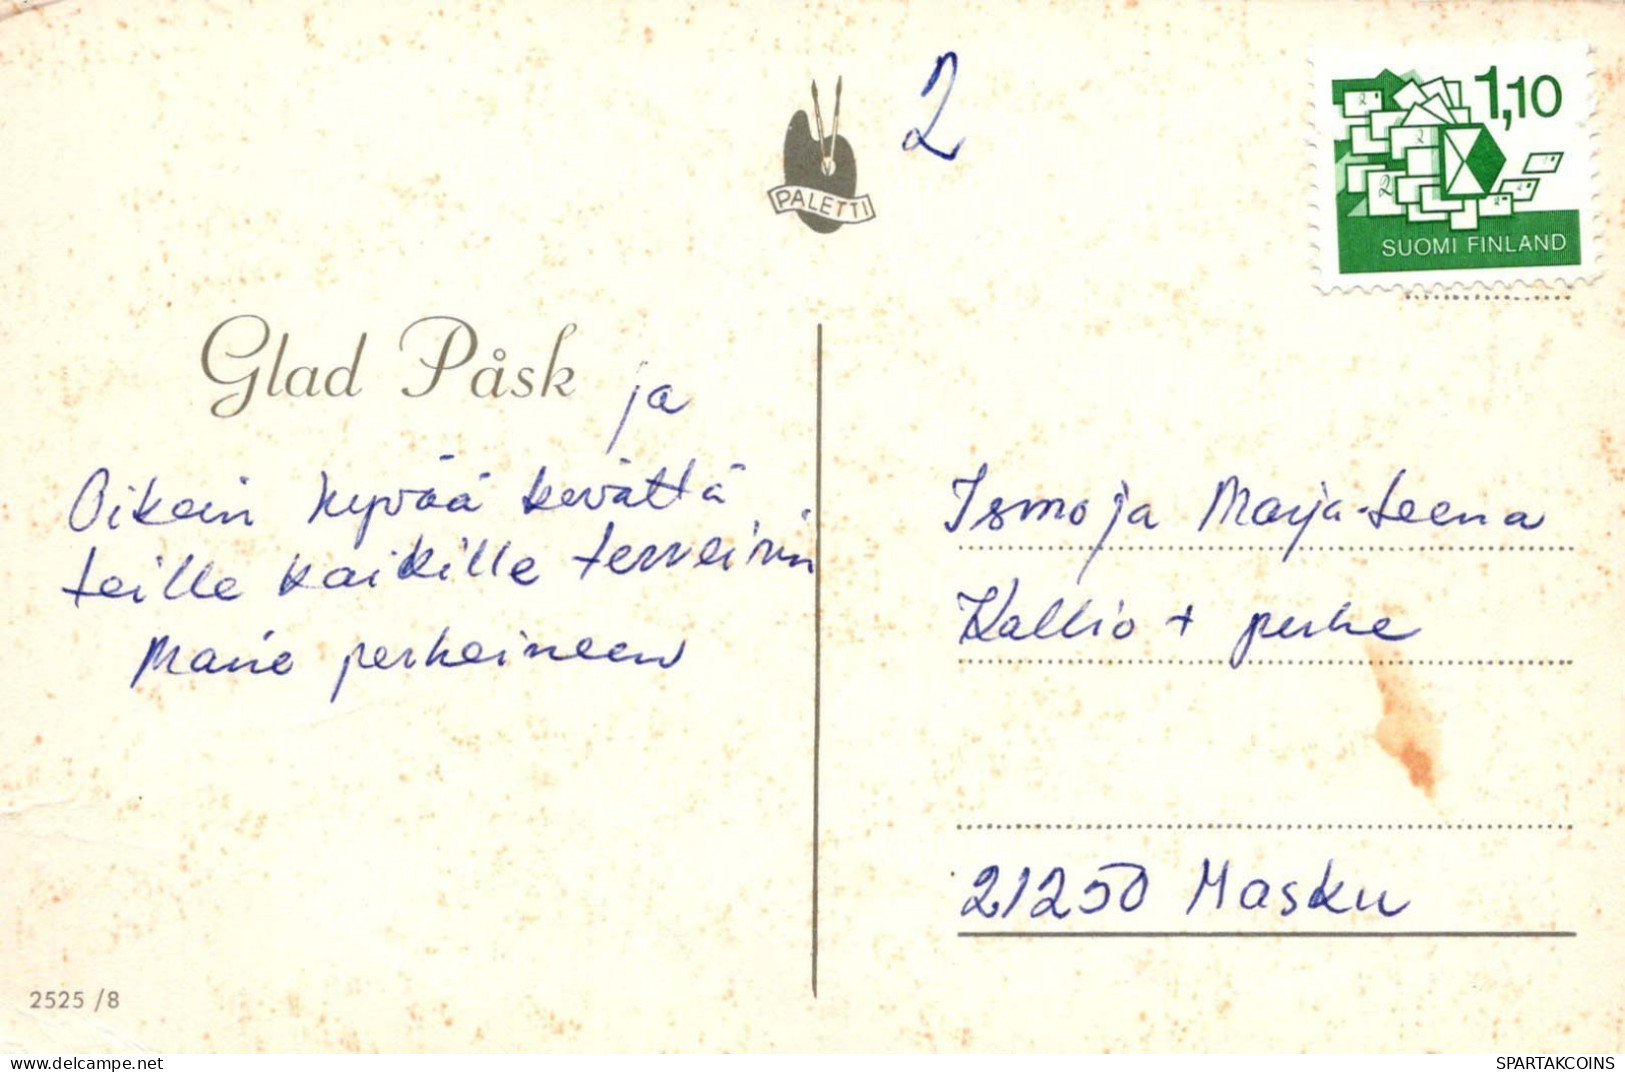 2
PALETTI
1,10
SUOMI FINLAND
Glad Påsk ja
Oikein hyvää kevättä
teille kaikille terveisin
perheineen
Ismo ja Marja-Leena
Kallio + perhe
21250 Masku
2525/8
delcampe.net
SPARTAKCOINS